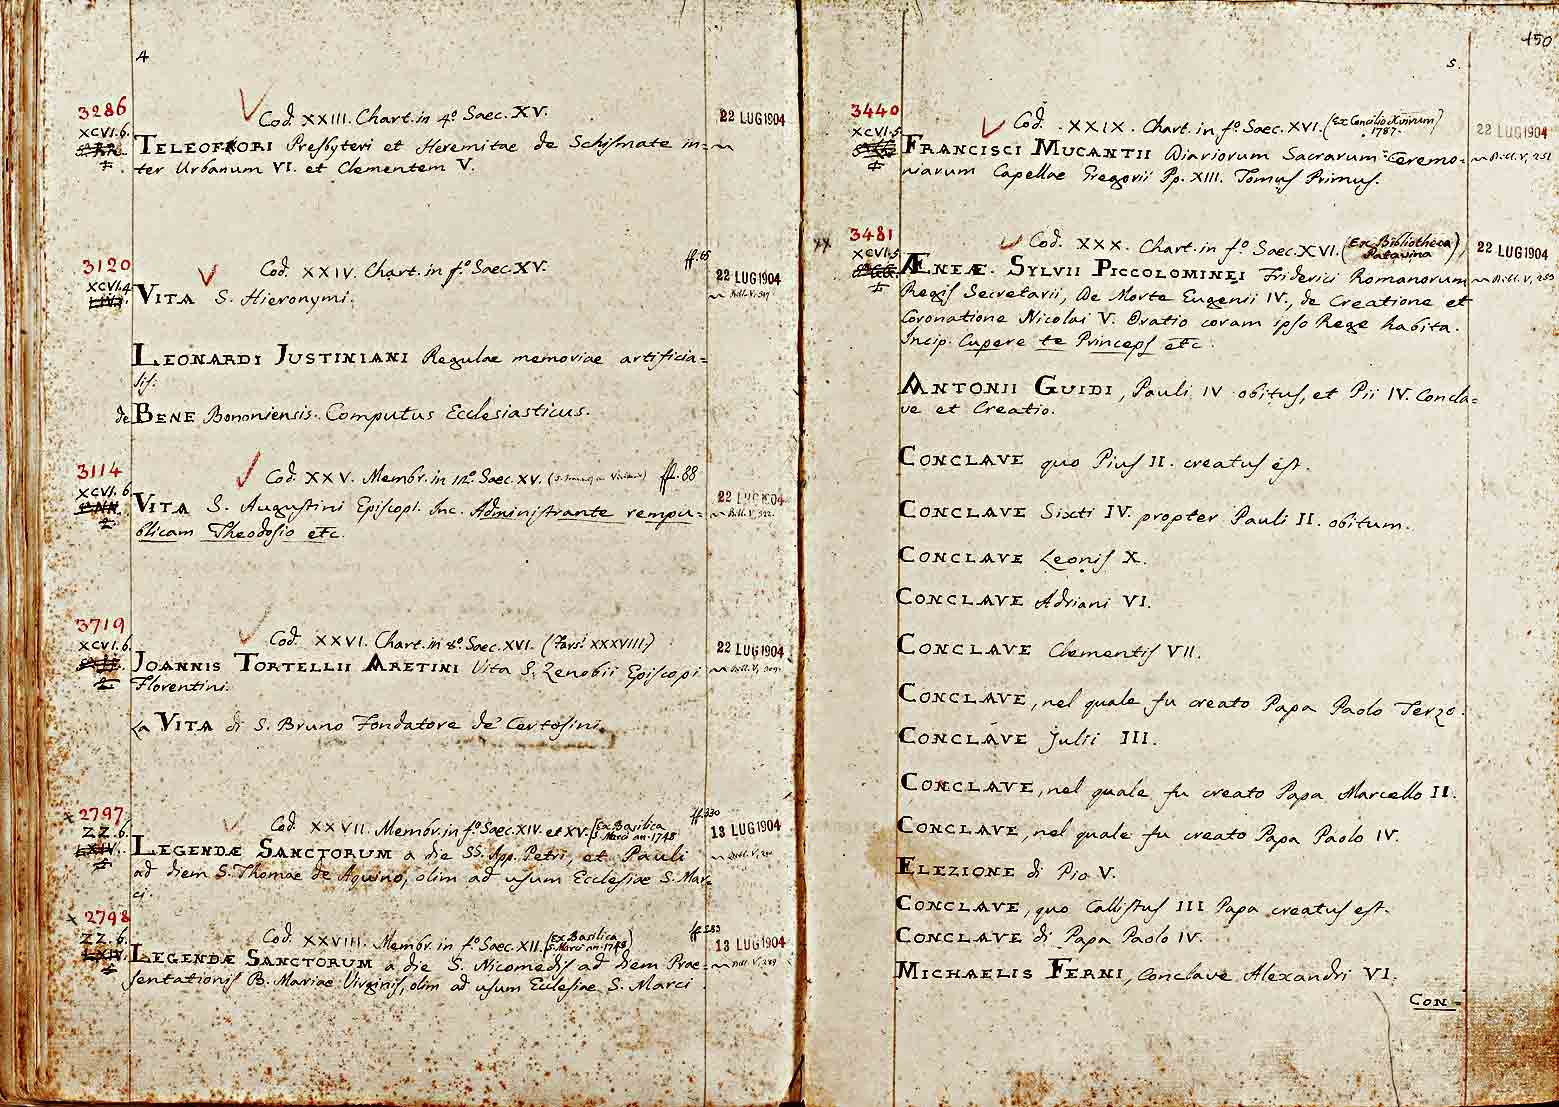 4
3286
Cod. XXIII. Chart. in 4º. Saec. XV.
22 LUG 1904
XCVI. 6.
TELEOFORI Presbyteri et Heremitae de Schismate in=
ter Urbanum VI. et Clementem V.
3120
Cod. XXIV. Chart. in fº. Saec. XV.
ff. 65
22 LUG 1904
XCVI. 4.
VITA S. Hieronymi.
LEONARDI JUSTINIANI Regulae memoriae artificia=
lis.
de BENE Bononiensis. Computus Ecclesiasticus.
3114
Cod. XXV. Membr. in 12º. Saec. XV.
ff. 88
XCVI. 6
22 LUG 1904
VITA S. Augustini Episcopi. Inc. Administrante rempu=
blicam Theodosio etc.
3719
Cod. XXVI. Chart. in 8º. Saec. XVI. (Fars. XXXVIII.)
22 LUG 1904
XCVI. 6.
JOANNIS TORTELLII ARETINI Vita S. Zenobii Episcopi
Florentini.
La VITA di S. Bruno Fondatore de' Certosini.
x 2797
ff. 330
Cod. XXVII. Membr. in fº. Saec. XIV. et XV. (Ex Basilica
S. Marci an. 1748
13 LUG 1904
ZZ. 6.
LXIV.
LEGENDÆ SANCTORUM a die SS. App. Petri, et Pauli
ad diem S. Thomae de Aquino, olim ad usum Ecclesiae S. Mar=
ci.
x 2798
Cod. XXVIII. Membr. in fº. Saec. XII. (Ex Basilica
S. Marci an. 1748)
13 LUG 1904
ZZ. 6.
LXIV.
LEGENDÆ SANCTORUM a die S. Nicomedis ad diem Prae=
sentationis B. Mariae Virginis, olim ad usum Ecclesiae S. Marci.
150
5.
3440
Cod. XXIX. Chart. in fº. Saec. XVI. (Ex Concilio Xvirum)
1787.
22 LUG 1904
XCVI. 5
FRANCISCI MUCANTII Diariorum Sacrarum Ceremo=
niarum Capellae Gregorii Pp. XIII. Tomus Primus.
xx 3481
Cod. XXX. Chart. in fº. Saec. XVI. (Ex Bibliotheca
Patavina)
22 LUG 1904
XCVI. 5
ÆNEÆ SYLVII PICCOLOMINEI Friderici Romanorum
Regis Secretarii, De Morte Eugenii IV., de Creatione et
Coronatione Nicolai V. Oratio coram ipso Rege habita.
Incip. Cupere te Princeps etc.
ANTONII GUIDI, Pauli IV obitus, et Pii IV. Concla=
ve et Creatio.
CONCLAVE quo Pius II. creatus est.
CONCLAVE Sixti IV. propter Pauli II. obitum.
CONCLAVE Leonis X.
CONCLAVE Adriani VI.
CONCLAVE Clementis VII.
CONCLAVE, nel quale fu creato Papa Paolo Terzo.
CONCLAVE Julii III.
CONCLAVE, nel quale fu creato Papa Marcello II.
CONCLAVE, nel quale fu creato Papa Paolo IV.
ELEZIONE di Pio V.
CONCLAVE, quo Callistus III Papa creatus est.
CONCLAVE di Papa Paolo IV.
MICHAELIS FERNI, Conclave Alexandri VI.
CON=